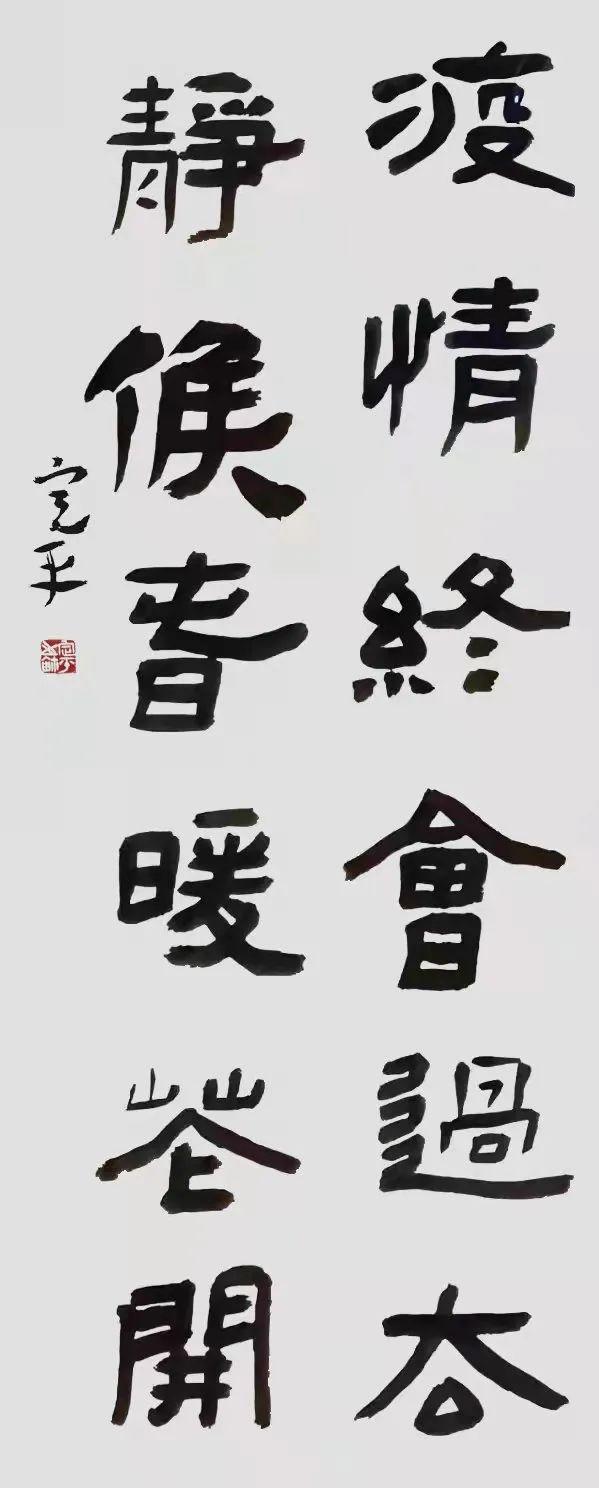 疫情終會過去
靜候春暖花開